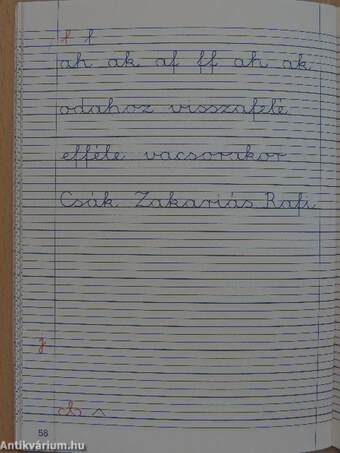 f f
ah ak af ff ah ak
odahoz visszafelé
efféle vacsorakor
Csák Zakariás Rafi
f
ch
58
Antikvárium.hu